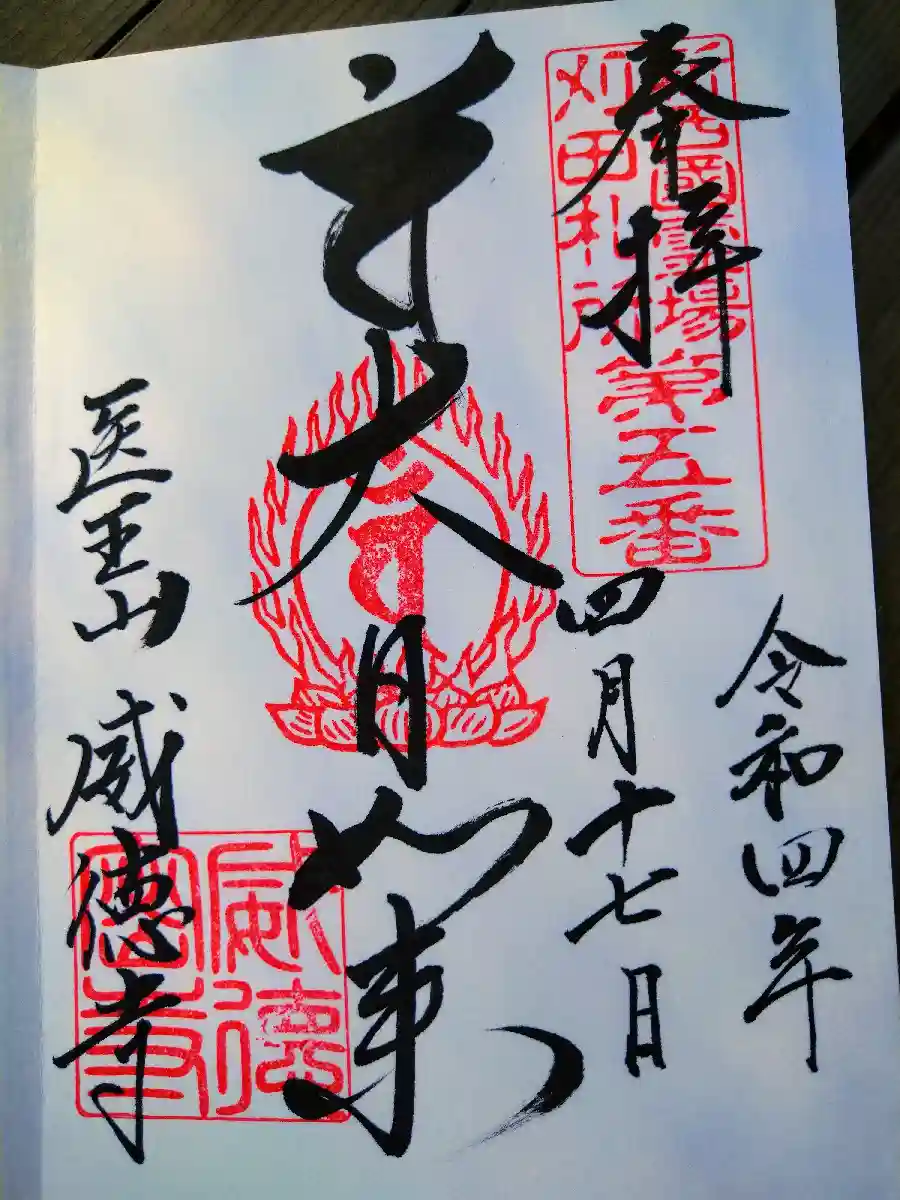 奉拝
西國霊場第五番
刈田札所
令和四年
四月十七日
大日如来
医王山 威徳寺
威德
寺